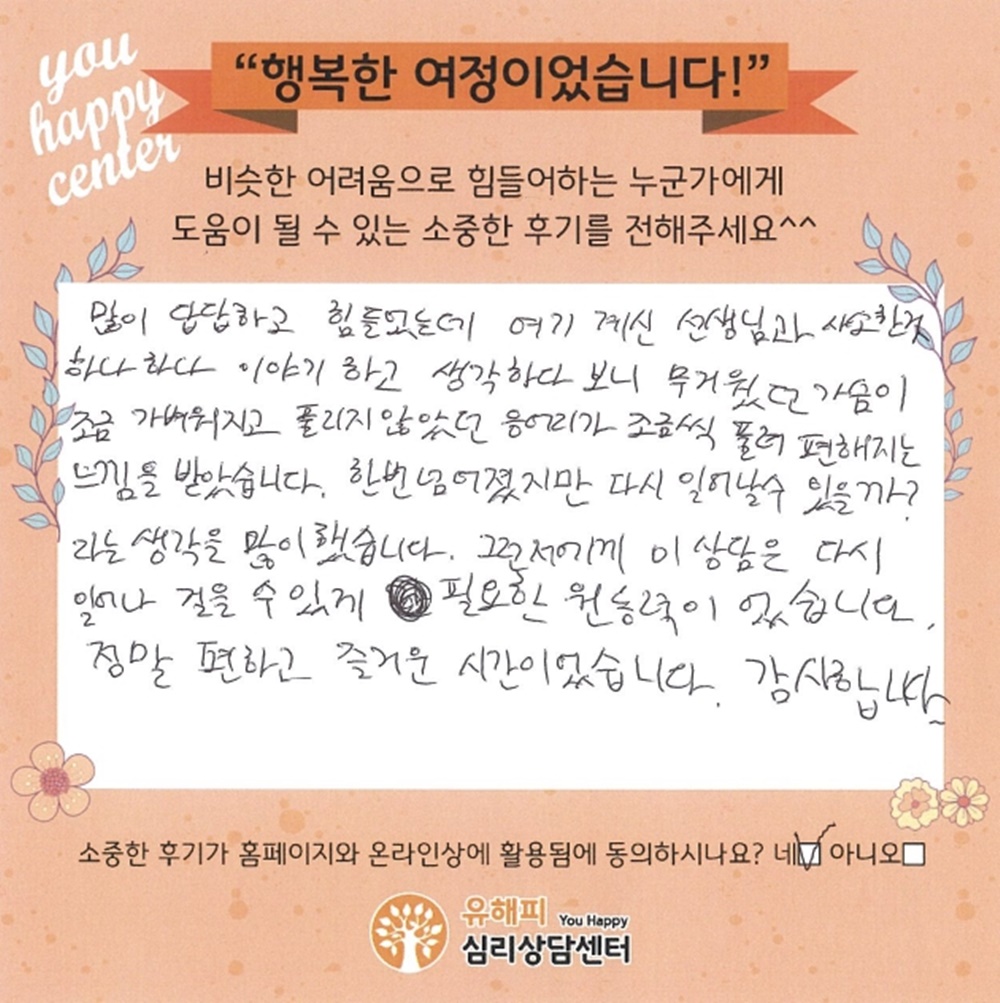 you
happy
center
“행복한 여정이었습니다!”
비슷한 어려움으로 힘들어하는 누군가에게
도움이 될 수 있는 소중한 후기를 전해주세요^^
많이 답답하고 힘들었는데 여기 계신 선생님과 사소한것
하나 하나 이야기 하고 생각하다 보니 무거웠던 가슴이
조금 가벼워지고 풀리지않았던 응어리가 조금씩 풀려 편해지는
느낌을 받았습니다. 한번 넘어졌지만 다시 일어날수 있을까?
라는 생각을 많이했습니다. 그런저에게 이 상담은 다시
일어나 걸을 수 있게 필요한 원동력이 었습니다.
정말 편하고 즐거운 시간이었습니다. 감사합니다~
소중한 후기가 홈페이지와 온라인상에 활용됨에 동의하시나요? 네 아니오
유해피 You Happy
심리상담센터